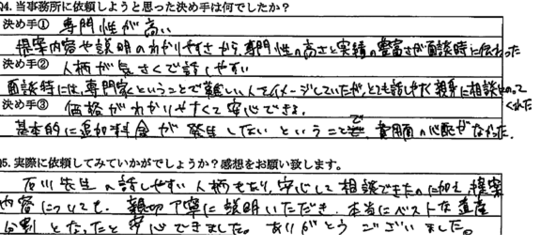 Q4. 当事務所に依頼しようと思った決め手は何でしたか?
決め手① 専門性が高い
提案内容や説明のわかりやすさから、専門性の高さと実績の豊富さが面談時に伝わった
決め手② 人柄が気さくで話しやすい
面談時には、専門家ということで難しい人をイメージしていたが、とても話しやすく親身に相談にのって
くれた
決め手③ 価格がわかりやすくて安心できる。
基本的に追加料金が発生しないということで、費用面の心配がなかった。
Q5. 実際に依頼してみていかがでしょうか?感想をお願い致します。
石川先生の話しやすい人柄もあり、安心して相談できたのに加え、提案
内容についても、親切丁寧に説明いただき、本当にベストな遺産
分割となったと安心できました。ありがとうございました。